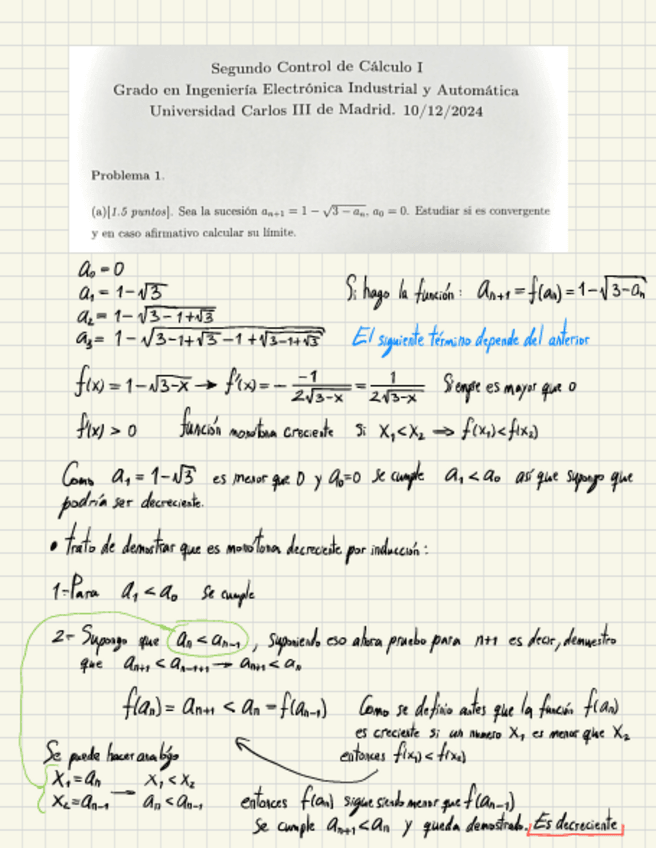 Segundo Control de Cálculo I
Grado en Ingeniería Electrónica Industrial y Automática
Universidad Carlos III de Madrid. 10/12/2024
Problema 1.
(a)[1.5 puntos]. Sea la sucesión aₙ₊₁ = 1 − √(3 − aₙ), a₀ = 0. Estudiar si es convergente
y en caso afirmativo calcular su límite.
a₀ = 0
a₁ = 1−√3
a₂ = 1−√(3−1+√3)
a₃ = 1−√(3−1+√3−1+√(3−1+√3))
Si hago la función: aₙ₊₁ = f(aₙ) = 1−√(3−aₙ)
El siguiente término depende del anterior
f(x) = 1−√(3−x) → f'(x) = − −1/(2√(3−x)) = 1/(2√(3−x)) Siempre es mayor que 0
f'(x) > 0 función monotona creciente Si x₁<x₂ ⇒ f(x₁)<f(x₂)
Como a₁ = 1−√3 es menor que 0 y a₀=0 se cumple a₁ < a₀ así que supongo que
podría ser decreciente.
• trato de demostrar que es monotona decreciente por inducción:
1-Para a₁ < a₀ se cumple
2- Supongo que aₙ < aₙ₋₁, suponiendo eso ahora pruebo para n+1 es decir, demuestro
que aₙ₊₁ < aₙ₋₁₊₁ → aₙ₊₁ < aₙ
f(aₙ) = aₙ₊₁ < aₙ = f(aₙ₋₁)
Como se definio antes que la función f(aₙ)
es creciente si un numero x₁ es menor que x₂
entonces f(x₁) < f(x₂)
Se puede hacer analogo
x₁ = aₙ → x₁ < x₂
x₂ = aₙ₋₁ aₙ < aₙ₋₁
entonces f(aₙ) sigue siendo menor que f(aₙ₋₁)
Se cumple aₙ₊₁ < aₙ y queda demostrado. Es decreciente